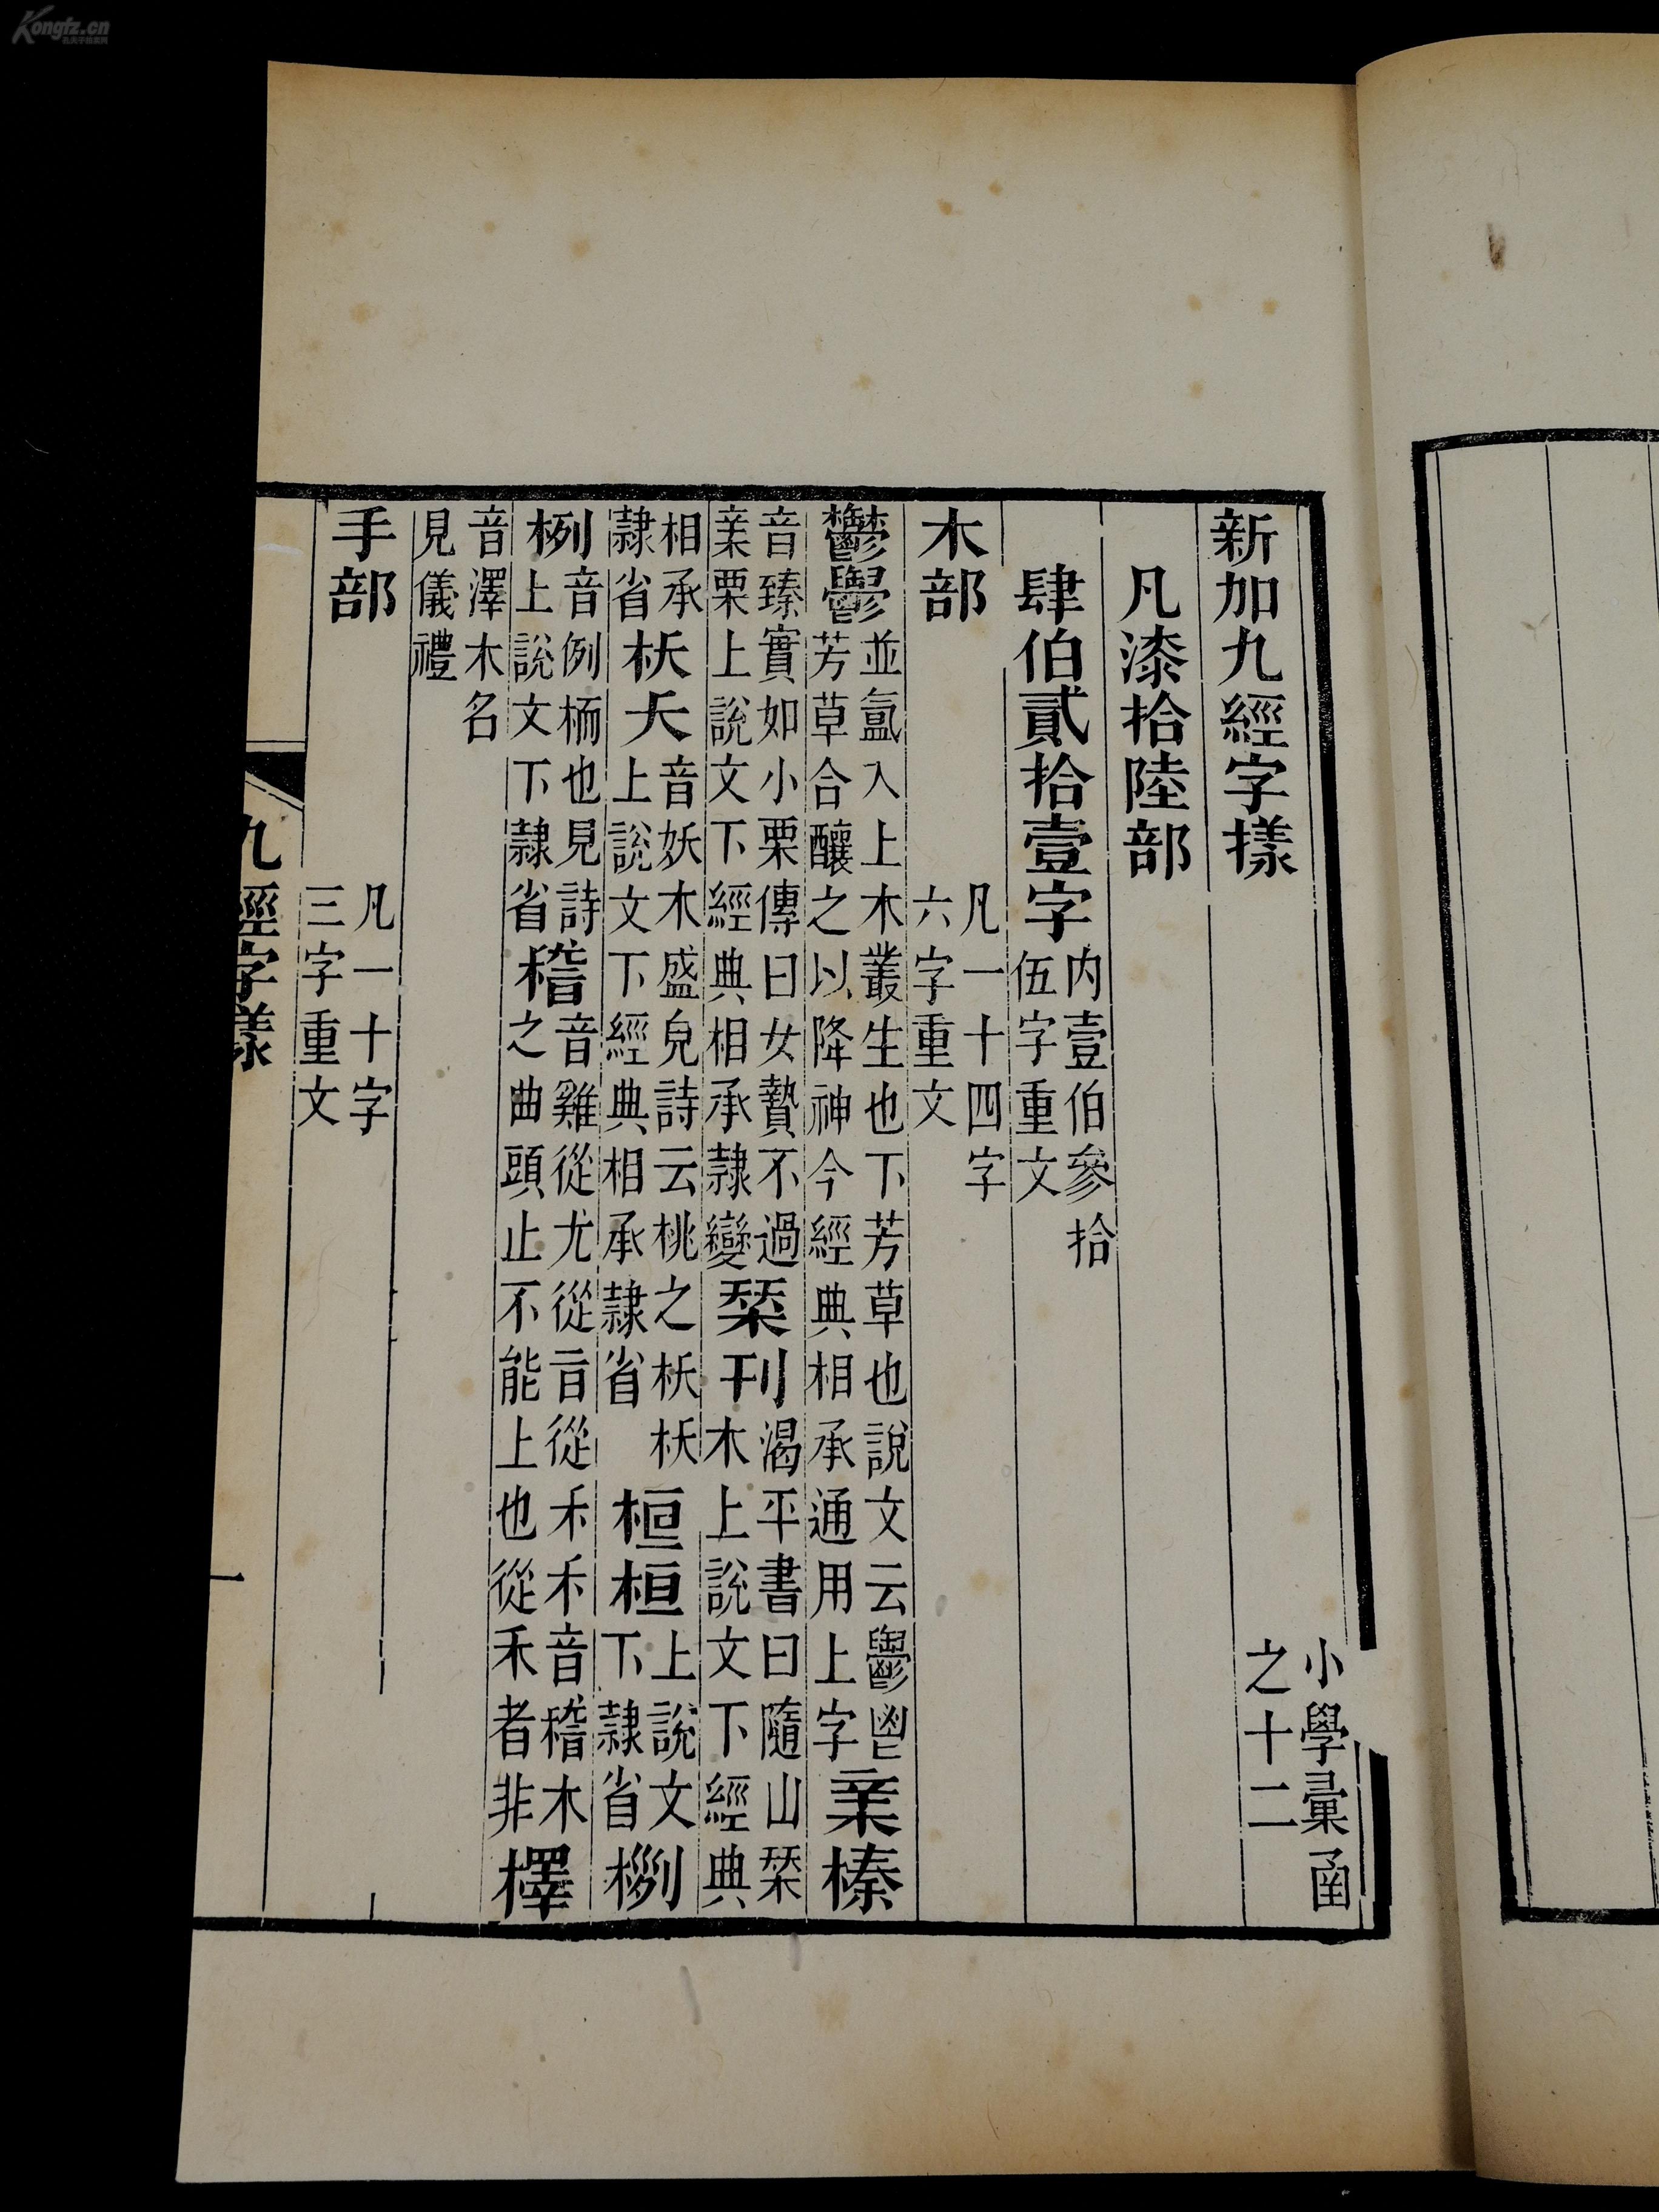 新加九經字㨾
小學彙函
之十二
凡漆拾陸部
肆伯貳拾壹字
内壹伯參拾
伍字重文
木部
凡一十四字
六字重文
鬱鬱
並氲入上木叢生也下芳草也說文云鬱鬯
芳草合釀之以降神今經典相承通用上字
亲榛
音臻實如小栗傳曰女贄不過
亲栗上說文下經典相承隷變
栞刊
渴平書曰隨山栞
木上說文下經典
相承
隷省
枖夭
音妖木盛皃詩云桃之枖枖
上說文下經典相承隷省
桓桓
上說文
下隷省
栵
音例栭也見詩
上說文下隷省
稽
音雞從尤從旨從禾禾音稽木
之曲頭止不能上也從禾者非
檡
音澤木名
見儀禮
手部
凡一十字
三字重文
九經字㨾
一
Kongfz.cn